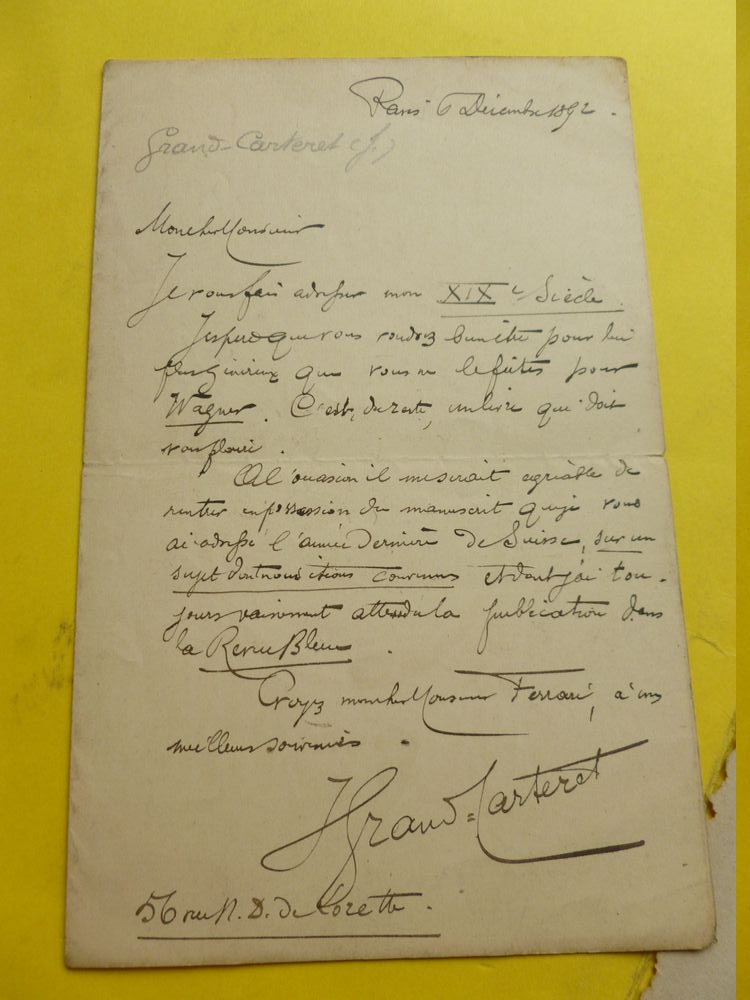 Paris 6 Décembre 1892.
Grand-Carteret (J.)
Mon cher Monsieur
Je vous fais adresser mon XIXe Siècle.
J'espère que vous voudrez bien être pour lui
plus généreux que vous ne le fûtes pour
Wagner. C'est, du reste, un livre qui doit
vous plaire.
A l'occasion il me serait agréable de
rentrer en possession du manuscrit que je vous
ai adressé l'année dernière de Suisse, sur un
sujet dont nous étions convenus et dont j'ai tou-
jours vainement attendu la publication dans
la Revue Bleue.
Croyez mon cher Monsieur Ferrari, à mes
meilleurs souvenirs.
J Grand-Carteret
56 rue N. D. de Lorette.